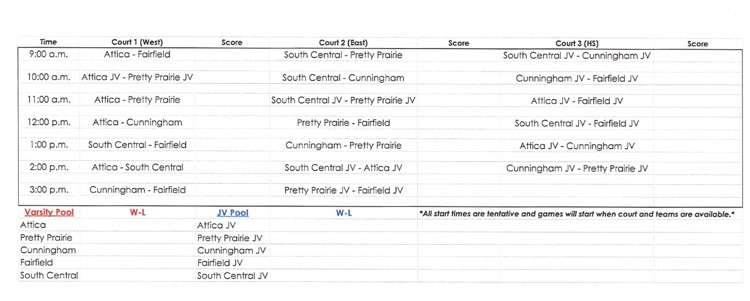 Time Court 1 (West) Score Court 2 (East) Score Court 3 (HS) Score
9:00 a.m. Attica - Fairfield South Central - Pretty Prairie South Central JV - Cunningham JV
10:00 a.m. Attica JV - Pretty Prairie JV South Central - Cunningham Cunningham JV - Fairfield JV
11:00 a.m. Attica - Pretty Prairie South Central JV - Pretty Prairie JV Attica JV - Fairfield JV
12:00 p.m. Attica - Cunningham Pretty Prairie - Fairfield South Central JV - Fairfield JV
1:00 p.m. South Central - Fairfield Cunningham - Pretty Prairie Attica JV - Cunningham JV
2:00 p.m. Attica - South Central South Central JV - Attica JV Cunningham JV - Pretty Prairie JV
3:00 p.m. Cunningham - Fairfield Pretty Prairie JV - Fairfield JV
Varsity Pool W-L JV Pool W-L *All start times are tentative and games will start when court and teams are available.*
Attica Attica JV
Pretty Prairie Pretty Prairie JV
Cunningham Cunningham JV
Fairfield Fairfield JV
South Central South Central JV